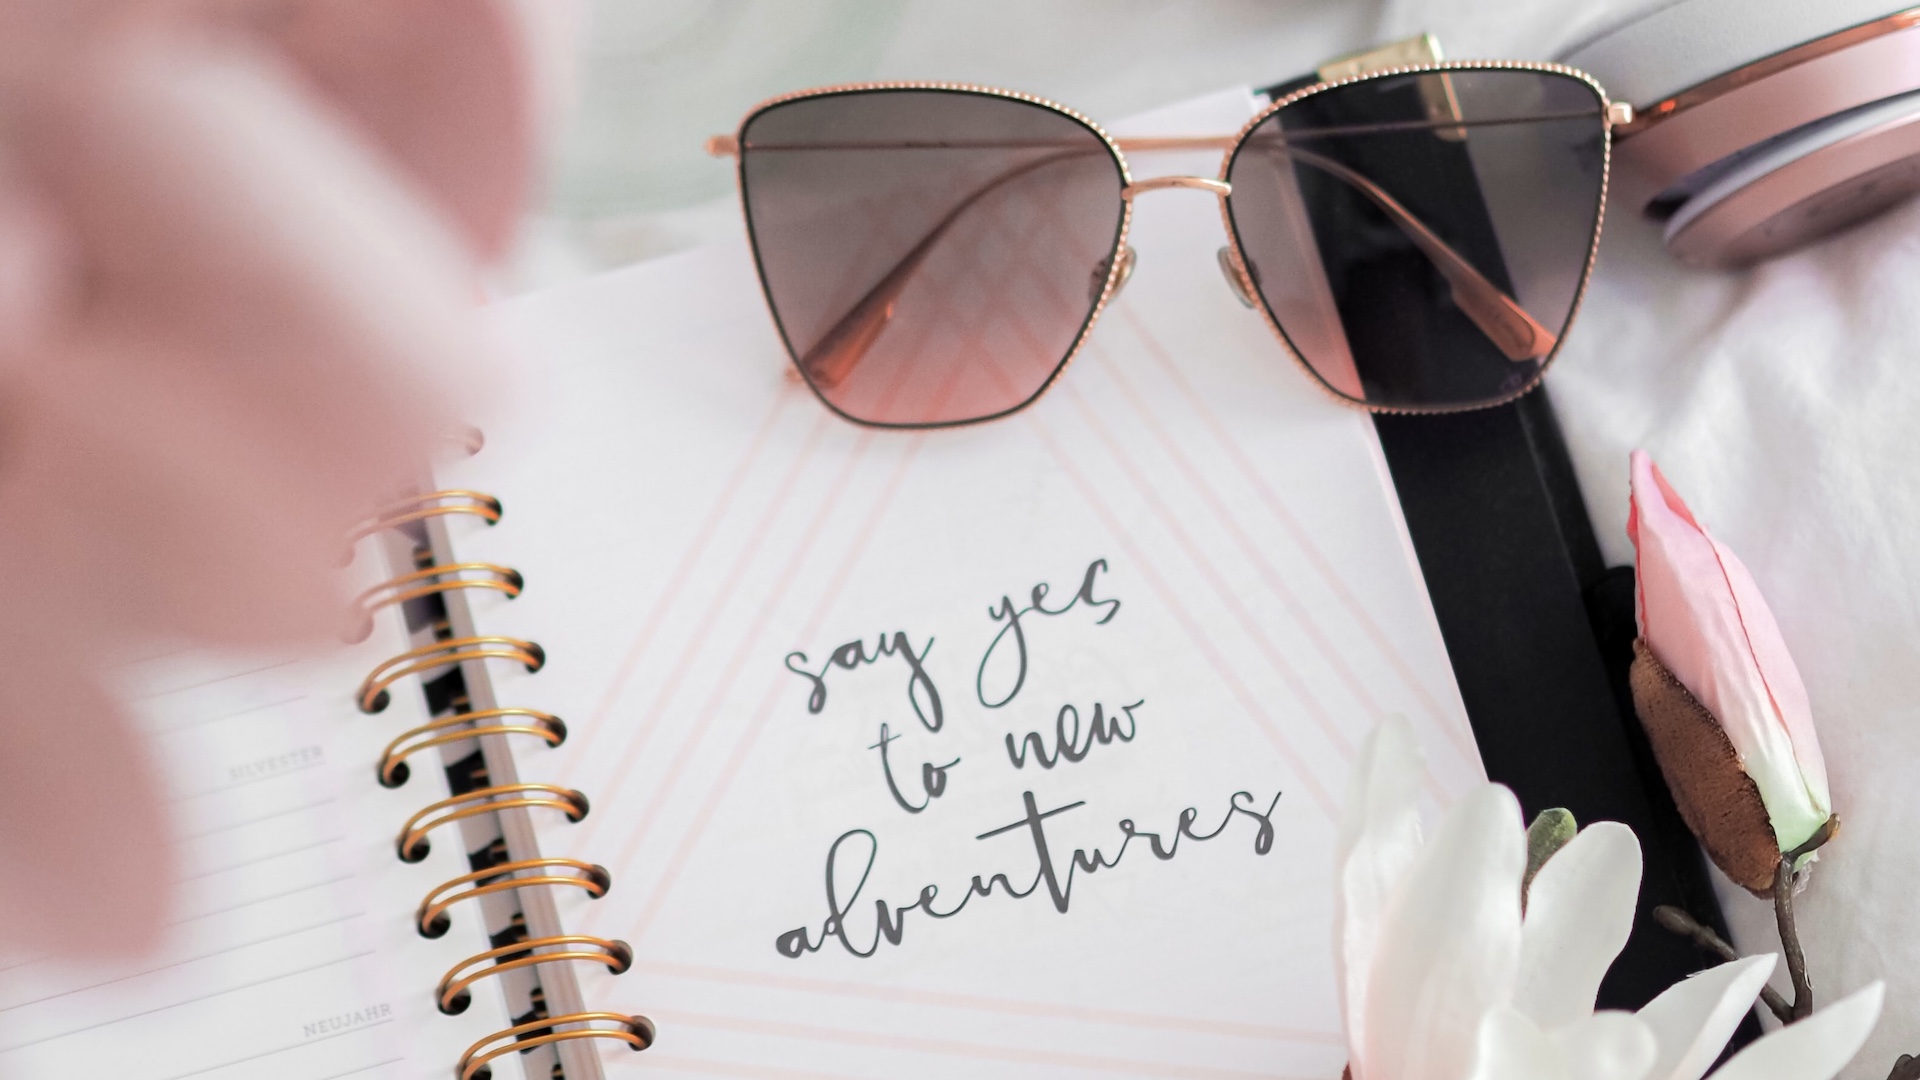 SILVESTER
NEUJAHR
say yes
to new
adventures